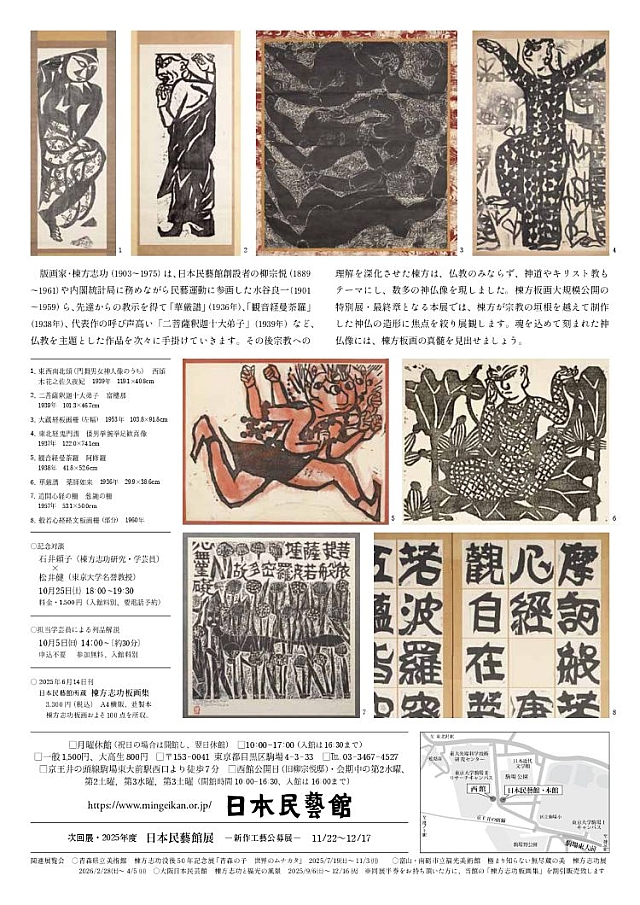 1
2
3
4
版画家・棟方志功（1903〜1975）は、日本民藝館創設者の柳宗悦（1889
〜1961）や内閣統計局に務めながら民藝運動に参画した水谷良一（1901
〜1959）ら、先達からの教示を得て「華厳譜」（1936年）、「観音経曼荼羅」
（1938年）、代表作の呼び声高い「二菩薩釈迦十大弟子」（1939年）など、
仏教を主題とした作品を次々に手掛けていきます。その後宗教への
理解を深化させた棟方は、仏教のみならず、神道やキリスト教も
テーマにし、数多の神仏像を現しました。棟方板画大規模公開の
特別展・最終章となる本展では、棟方が宗教の垣根を越えて制作
した神仏の造形に焦点を絞り展観します。魂を込めて刻まれた神
仏像には、棟方板画の真髄を見出せましょう。
1. 東西南北頌（門舞男女神人像のうち） 西頌
木花之佐久夜妃 1939年 119.1×40.8cm
2. 二菩薩釈迦十大弟子 富樓那
1939年 101.3×46.7cm
3. 大蔵経板画柵（左幅） 1953年 103.8×91.8cm
4. 東北経鬼門譜
1937年 122.0×74.1cm
5. 観音経曼荼羅 阿修羅
1938年 41.8×52.6cm
6. 華厳譜 薬師如来 1936年 29.9×38.6cm
7. 追開心経の柵
1957年 53.1×50.0cm
8. 般若心経経文板画柵（部分） 1960年
5
6
7
8
〇記念対談
石井頼子（棟方志功研究・学芸員）
×
松井健（東京大学名誉教授）
10月25日［土］ 18:00〜19:30
料金・1,500円（入館料別、要電話予約）
〇担当学芸員による列品解説
10月5日［日］ 14:00〜［約30分］
申込不要 参加無料、入館料別
〇2025年6月14日刊
日本民藝館所蔵 棟方志功板画集
3,300円（税込） A4横版、並製本
棟方志功板画およそ100点を所収。
摩訶般
心經
觀自在
若波羅
□月曜休館（祝日の場合は開館し、翌日休館） □10:00−17:00（入館は16:30まで）
□一般1,500円、大高生800円 □〒153-0041 東京都目黒区駒場4-3-33 □℡ 03-3467-4527
□京王井の頭線駒場東大前駅西口より徒歩7分 □西館公開日（旧柳宗悦邸）・会期中の第2水曜、
第2土曜、第3水曜、第3土曜（開館時間 10:00−16:30、入館は16:00まで）
https://www.mingeikan.or.jp/ 日本民藝館
次回展・2025年度 日本民藝館展 −新作工藝公募展− 11/22〜12/17
東大先端科学技術
研究センター
日本近代
文学館
東京大学駒場Ⅱ
リサーチキャンパス
駒場公園
西館
日本民藝館・本館
東京大学駒場Ⅰ
キャンパス
駒場東大前
関連展覧会 〇青森県立美術館 棟方志功没後50年記念展「青森の子 世界のムナカタ」 2025/7/19(土)〜11/3(月) 〇富山・南砺市立福光美術館 極まり知らない無尽蔵の美 棟方志功展
2026/2/28(土)〜4/5(日) 〇大阪日本民芸館 棟方志功と福光の風景 2025/9/6(土)〜12/16(火) ※同展半券をお持ち頂いた方に、当館の「棟方志功板画集」を割引販売致します